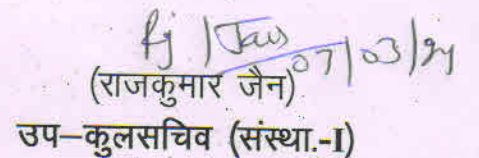 07/03/24
(राजकुमार जैन)
उप–कुलसचिव (संस्था.-I)